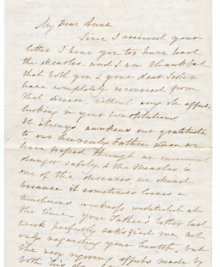 My dear Anna
Since I received your
letter I hear you too have had
the measles, and I am thankful
that both you & your dear Sister
have completely recovered from
that disease without any ill effects
lurking in your constitutions
It always awakens our gratitude
to our heavenly Father when we
have passed through an
danger safely & the measles is
one of the diseases we dread
because it sometimes leaves
undetected at
the time. your Father's letter last
week perfectly satisfied me not
only regarding your health, but
the very efforts made by
both